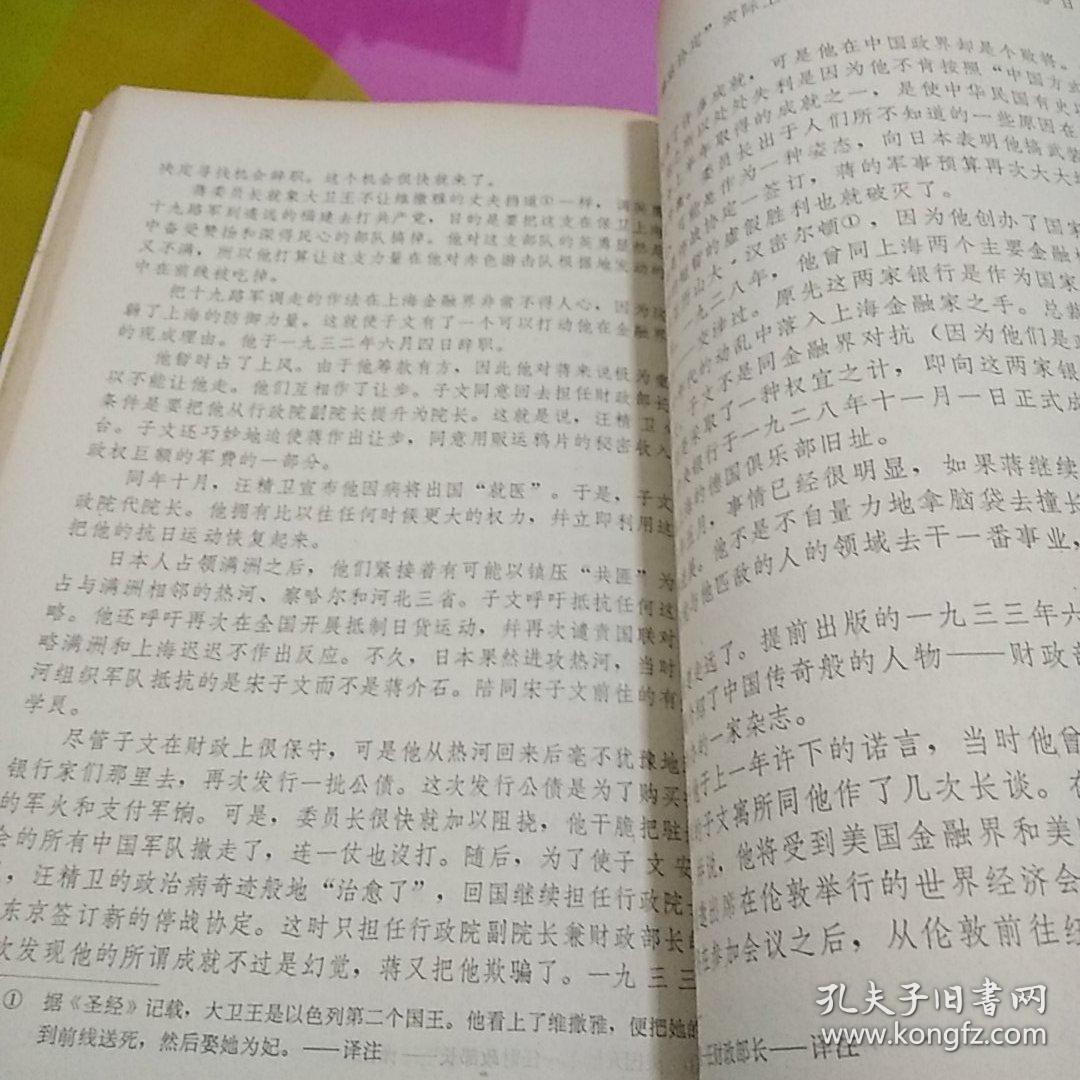 决定寻找机会辞职。这个机会很快就来了。
蒋委员长就象大卫王不让维撒雅的丈夫挡道①一样，调
十九路军到遥远的福建去打共产党，目的是要把这支在保卫上海
中备受赞扬和深得民心的部队搞掉。他对这支部队的英勇
又不满，所以他打算让这支力量在他对赤色游击队根据地发动的
中在前线被吃掉。
把十九路军调走的作法在上海金融界非常不得人心，因为这
弱了上海的防御力量。这就使子文有了一个可以打动他在金融界
的现成理由。他于一九三二年六月四日辞职。
他暂时占了上风。由于他筹款有方，因此他对蒋来说极为
以不能让他走。他们互相作了让步。子文同意回去担任财政部长
条件是要把他从行政院副院长提升为院长。这就是说，汪精卫
台。子文还巧妙地迫使蒋作出让步，同意用贩运鸦片的秘密收入
政权巨额的军费的一部分。
同年十月，汪精卫宣布他因病将出国“就医”。于是，子文
政院代院长。他拥有比以往任何时候更大的权力，并立即利用这
把他的抗日运动恢复起来。
日本人占领满洲之后，他们紧接着有可能以镇压“共匪”为
占与满洲相邻的热河、察哈尔和河北三省。子文呼吁抵抗任何这
略。他还呼吁再次在全国开展抵制日货运动，并再次谴责国联对
略满洲和上海迟迟不作出反应。不久，日本果然进攻热河，当时
河组织军队抵抗的是宋子文而不是蒋介石。陪同宋子文前往的有
学良。
尽管子文在财政上很保守，可是他从热河回来后毫不犹豫地
银行家们那里去，再次发行一批公债。这次发行公债是为了购买
的军火和支付军饷。可是，委员长很快就加以阻挠，他干脆把驻
会的所有中国军队撤走了，连一仗也没打。随后，为了使子文安
，汪精卫的政治病奇迹般地“治愈了”，回国继续担任行政院
东京签订新的停战协定。这时只担任行政院副院长兼财政部长的
次发现他的所谓成就不过是幻觉，蒋又把他欺骗了。一九三三
① 据《圣经》记载，大卫王是以色列第二个国王。他看上了维撒雅，便把她的
到前线送死，然后娶她为妃。——译注
”实际上
成就，可是他在中国政界却是个败将。
处处失利是因为他不肯按照“中国方式
年取得的成就之一，是使中华民国有史以
委员长出于人们所不知道的一些原因在
是作为一种姿态，向日本表明他搞武装
协定一签订，蒋的军事预算再次大大增
的虚假胜利也就破灭了。
历山大·汉密尔顿①，因为他创办了国家
一九二八年，他曾同上海两个主要金融
交涉过。原先这两家银行是作为国家
代的动乱中落入上海金融家之手。总裁
子文不是同金融界对抗（因为他们是
采取了一种权宜之计，即向这两家银
银行于一九二八年十一月一日正式成
的德国俱乐部旧址。
月，事情已经很明显，如果蒋继续
他不是不自量力地拿脑袋去撞长
与他匹敌的人的领域去干一番事业，
走远了。提前出版的一九三三年六
绍了中国传奇般的人物——财政部
的一家杂志。
于上一年许下的诺言，当时他曾
子文寓所同他作了几次长谈。在
说，他将受到美国金融界和美国
出席在伦敦举行的世界经济会
在参加会议之后，从伦敦前往纽
任财政部长——译注
孔夫子旧书网
www.kongfz.com